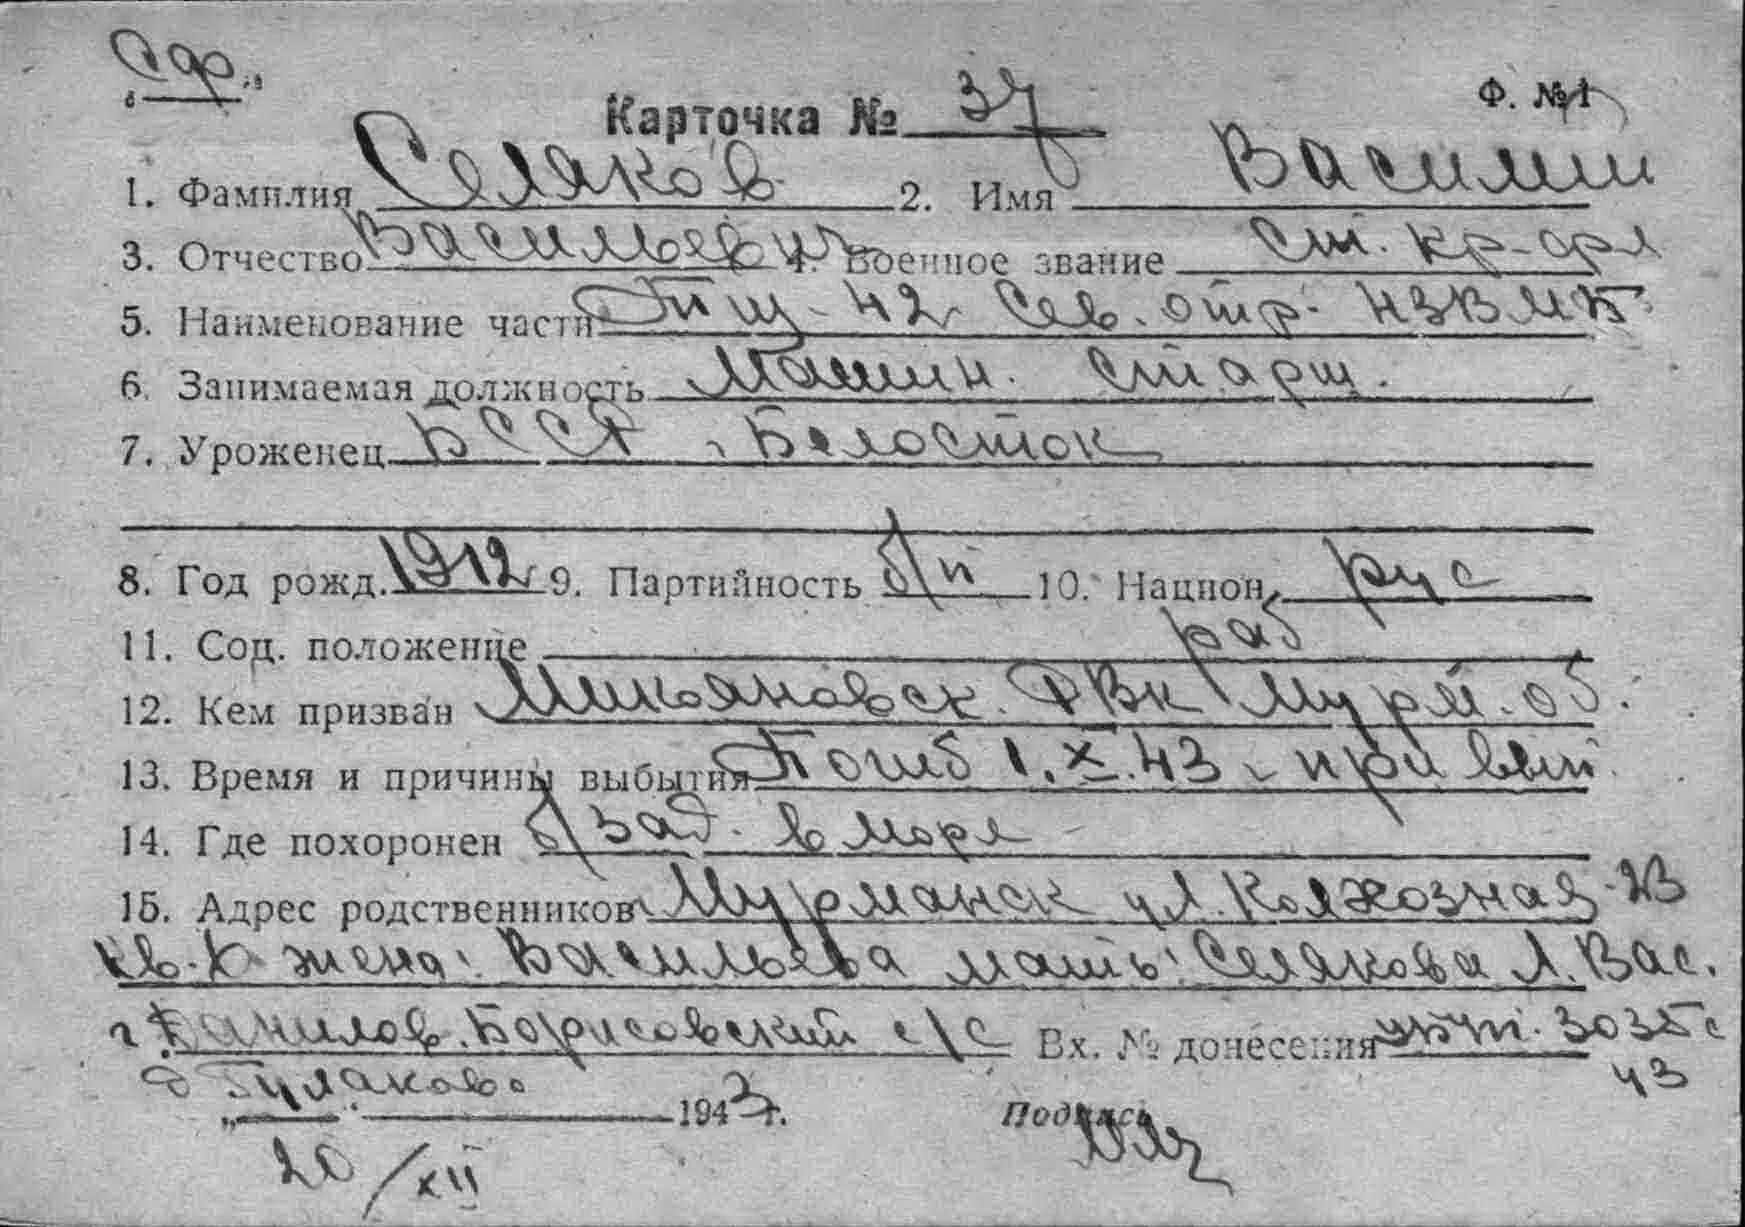 Сф.
Карточка № 37 Ф. № 1
1. Фамилия Селяков 2. Имя Василий
3. Отчество Васильевич 4. Военное звание ст. кр-фл
5. Наименование части Тщ-42 Сев. отр. НЗВМБ
6. Занимаемая должность Машин. старш.
7. Уроженец БССР, Белосток
8. Год рожд. 1912 9. Партийность б/п 10. Национ. рус
11. Соц. положение раб
12. Кем призван Микояновск. РВк Мурм. об.
13. Время и причины выбытия Погиб 1.X.43, при вып.
14. Где похоронен б/зад. в море
15. Адрес родственников Мурманск ул. Колхозная-23
кв. жена: Васильева мать: Селякова Л. Вас.
г Данилов. Борисовский с/с Вх. № донесения 3035с
д Гулаково 43
„ “ 1943 г. Подпись
20/XII